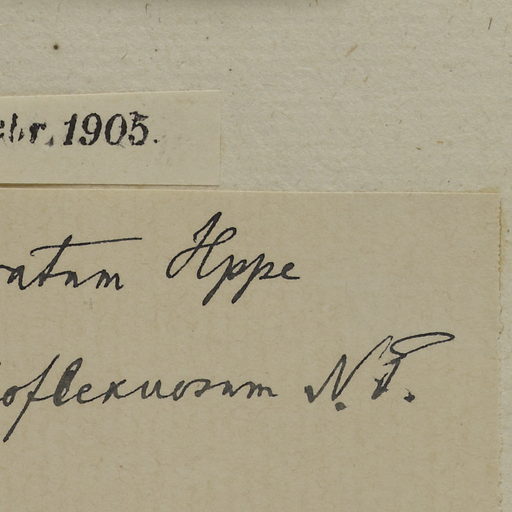 ebr. 1905.
ratum Hppe
oflexuosum N. P.